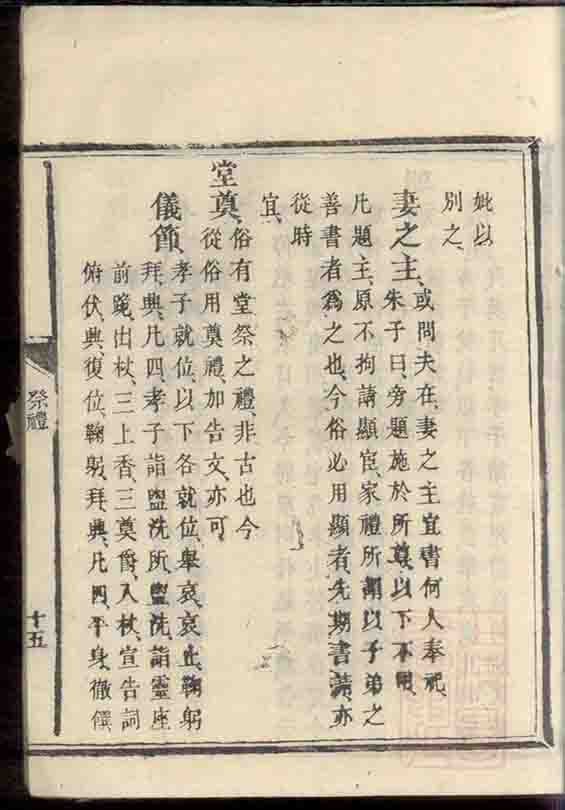 妣以
別之、
妻之主、或問夫在、妻之主宜書何人奉祀、
朱子曰、旁題施於所尊、以下不用、
凡題主、原不拘請顯宦、家禮所謂以子弟之
善書者為之也、今俗必用顯者、先期書請、亦
從時
宜、
堂奠、俗有堂祭之禮、非古也今
從俗用奠禮、加告文、亦可、
儀節、孝子就位、以下各就位、舉哀、哀止、鞠躬
拜、興、凡四、孝子詣盥洗所、盥洗、詣靈座
前跪、出杖、三上香、三奠爵、入杖、宣告詞
俯伏、興、復位、鞠躬、拜、興、凡四、平身、徹饌
祭禮
十五